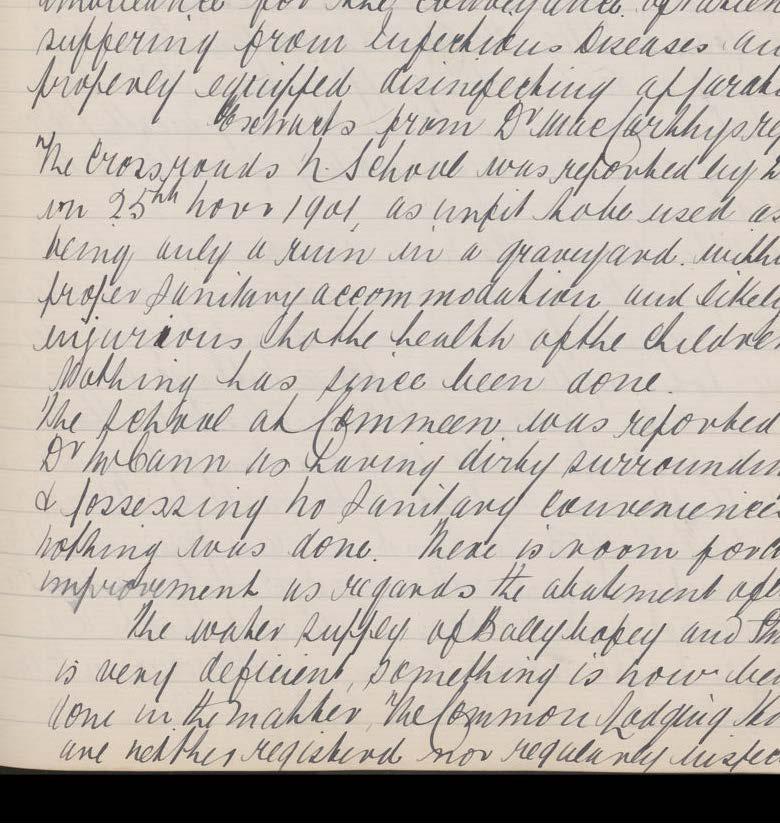 ambulance for the conveyance of
suffering from Infectious Diseases an
properly equipped disinfecting appara
Extracts from Dr MacCarthys re
The Crossroads N. School was reported by
on 25th Novr 1901, as unfit to be used as
being only a ruin in a graveyard. with
proper Sanitary accommodation and likely
injurious to the health of the children
Nothing has since been done.
The School at Commeen was reported
Dr McCann as having dirty surroundin
& possessing no Sanitary conveniences
nothing was done. There is room for
improvement as regards the abatement of
The water supply of Ballybofey and
is very deficient, something is now be
done in the matter, The Common Lodging
are neither registerd nor regularly inspec